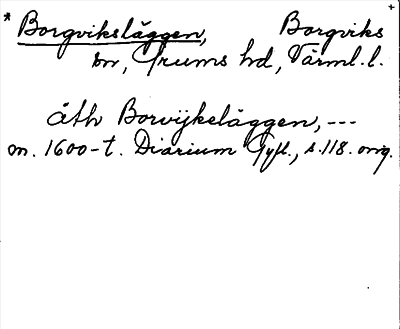 * Borgviksläggen, Borgviks +
sn, Grums hd, Värml.l.
åth Borwijkeläggen, ---
m. 1600-t. Diarium Gyll., s.118. orig.